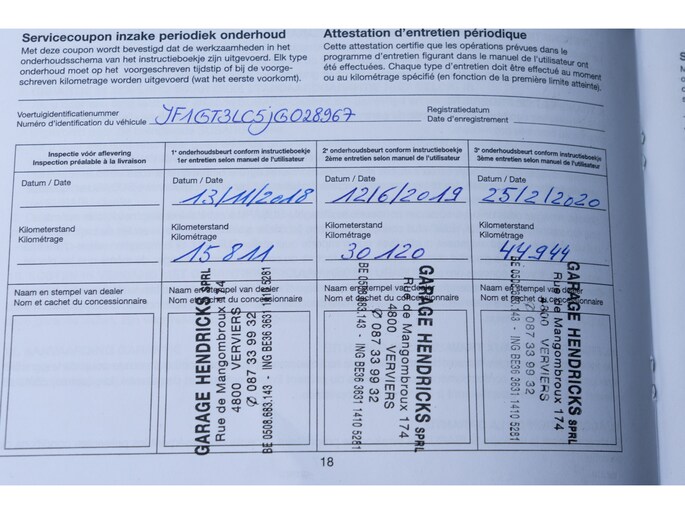 Servicecoupon inzake periodiek onderhoud
Met deze coupon wordt bevestigd dat de werkzaamheden in het
onderhoudsschema van het instructieboekje zijn uitgevoerd. Elk type
onderhoud moet op het voorgeschreven tijdstip of bij de voorge-
schreven kilometrage worden uitgevoerd (wat het eerste voorkomt).
Attestation d'entretien périodique
Cette attestation certifie que les opérations prévues dans le
programme d'entretien figurant dans le manuel de l'utilisateur ont
été effectuées. Chaque type d'entretien doit être effectué au moment
ou au kilométrage spécifié (en fonction de la première limite atteinte).
Voertuigidentificatienummer
Numéro d'identification du véhicule
Registratiedatum
Date d'enregistrement
Inspectie vóór aflevering
Inspection préalable à la livraison
Datum / Date
Kilometerstand
Kilométrage
Naam en stempel van dealer
Nom et cachet du concessionnaire
1e onderhoudsbeurt conform instructieboekje
1er entretien selon manuel de l'utilisateur
Datum / Date
13/11/2018
Kilometerstand
Kilométrage
15 811
Naam en stempel van dealer
Nom et cachet du concessionnaire
GARAGE HENDRICKS SPRL
Rue de Mangombroux 174
4800 VERVIERS
✆ 087 33 99 32
BE 0508.683.143 - ING BE36 3631 1410 5261
2e onderhoudsbeurt conform instructieboekje
2ème entretien selon manuel de l'utilisateur
Datum / Date
12/6/2019
Kilometerstand
Kilométrage
30 120
Naam en stempel van dealer
Nom et cachet du concessionnaire
GARAGE HENDRICKS SPRL
Rue de Mangombroux 174
4800 VERVIERS
✆ 087 33 99 32
BE 0508.683.143 - ING BE36 3631 1410 5261
3e onderhoudsbeurt conform instructieboekje
3ème entretien selon manuel de l'utilisateur
Datum / Date
25/2/2020
Kilometerstand
Kilométrage
44944
Naam en stempel van dealer
Nom et cachet du concessionnaire
GARAGE HENDRICKS SPRL
Rue de Mangombroux 174
4800 VERVIERS
✆ 087 33 99 32
BE 0508.683.143 - ING BE36 3631 1410 5261
18